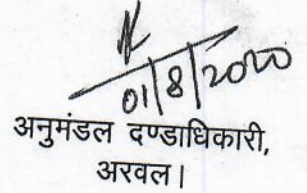 01/8/2020
अनुमंडल दण्डाधिकारी,
अरवल।